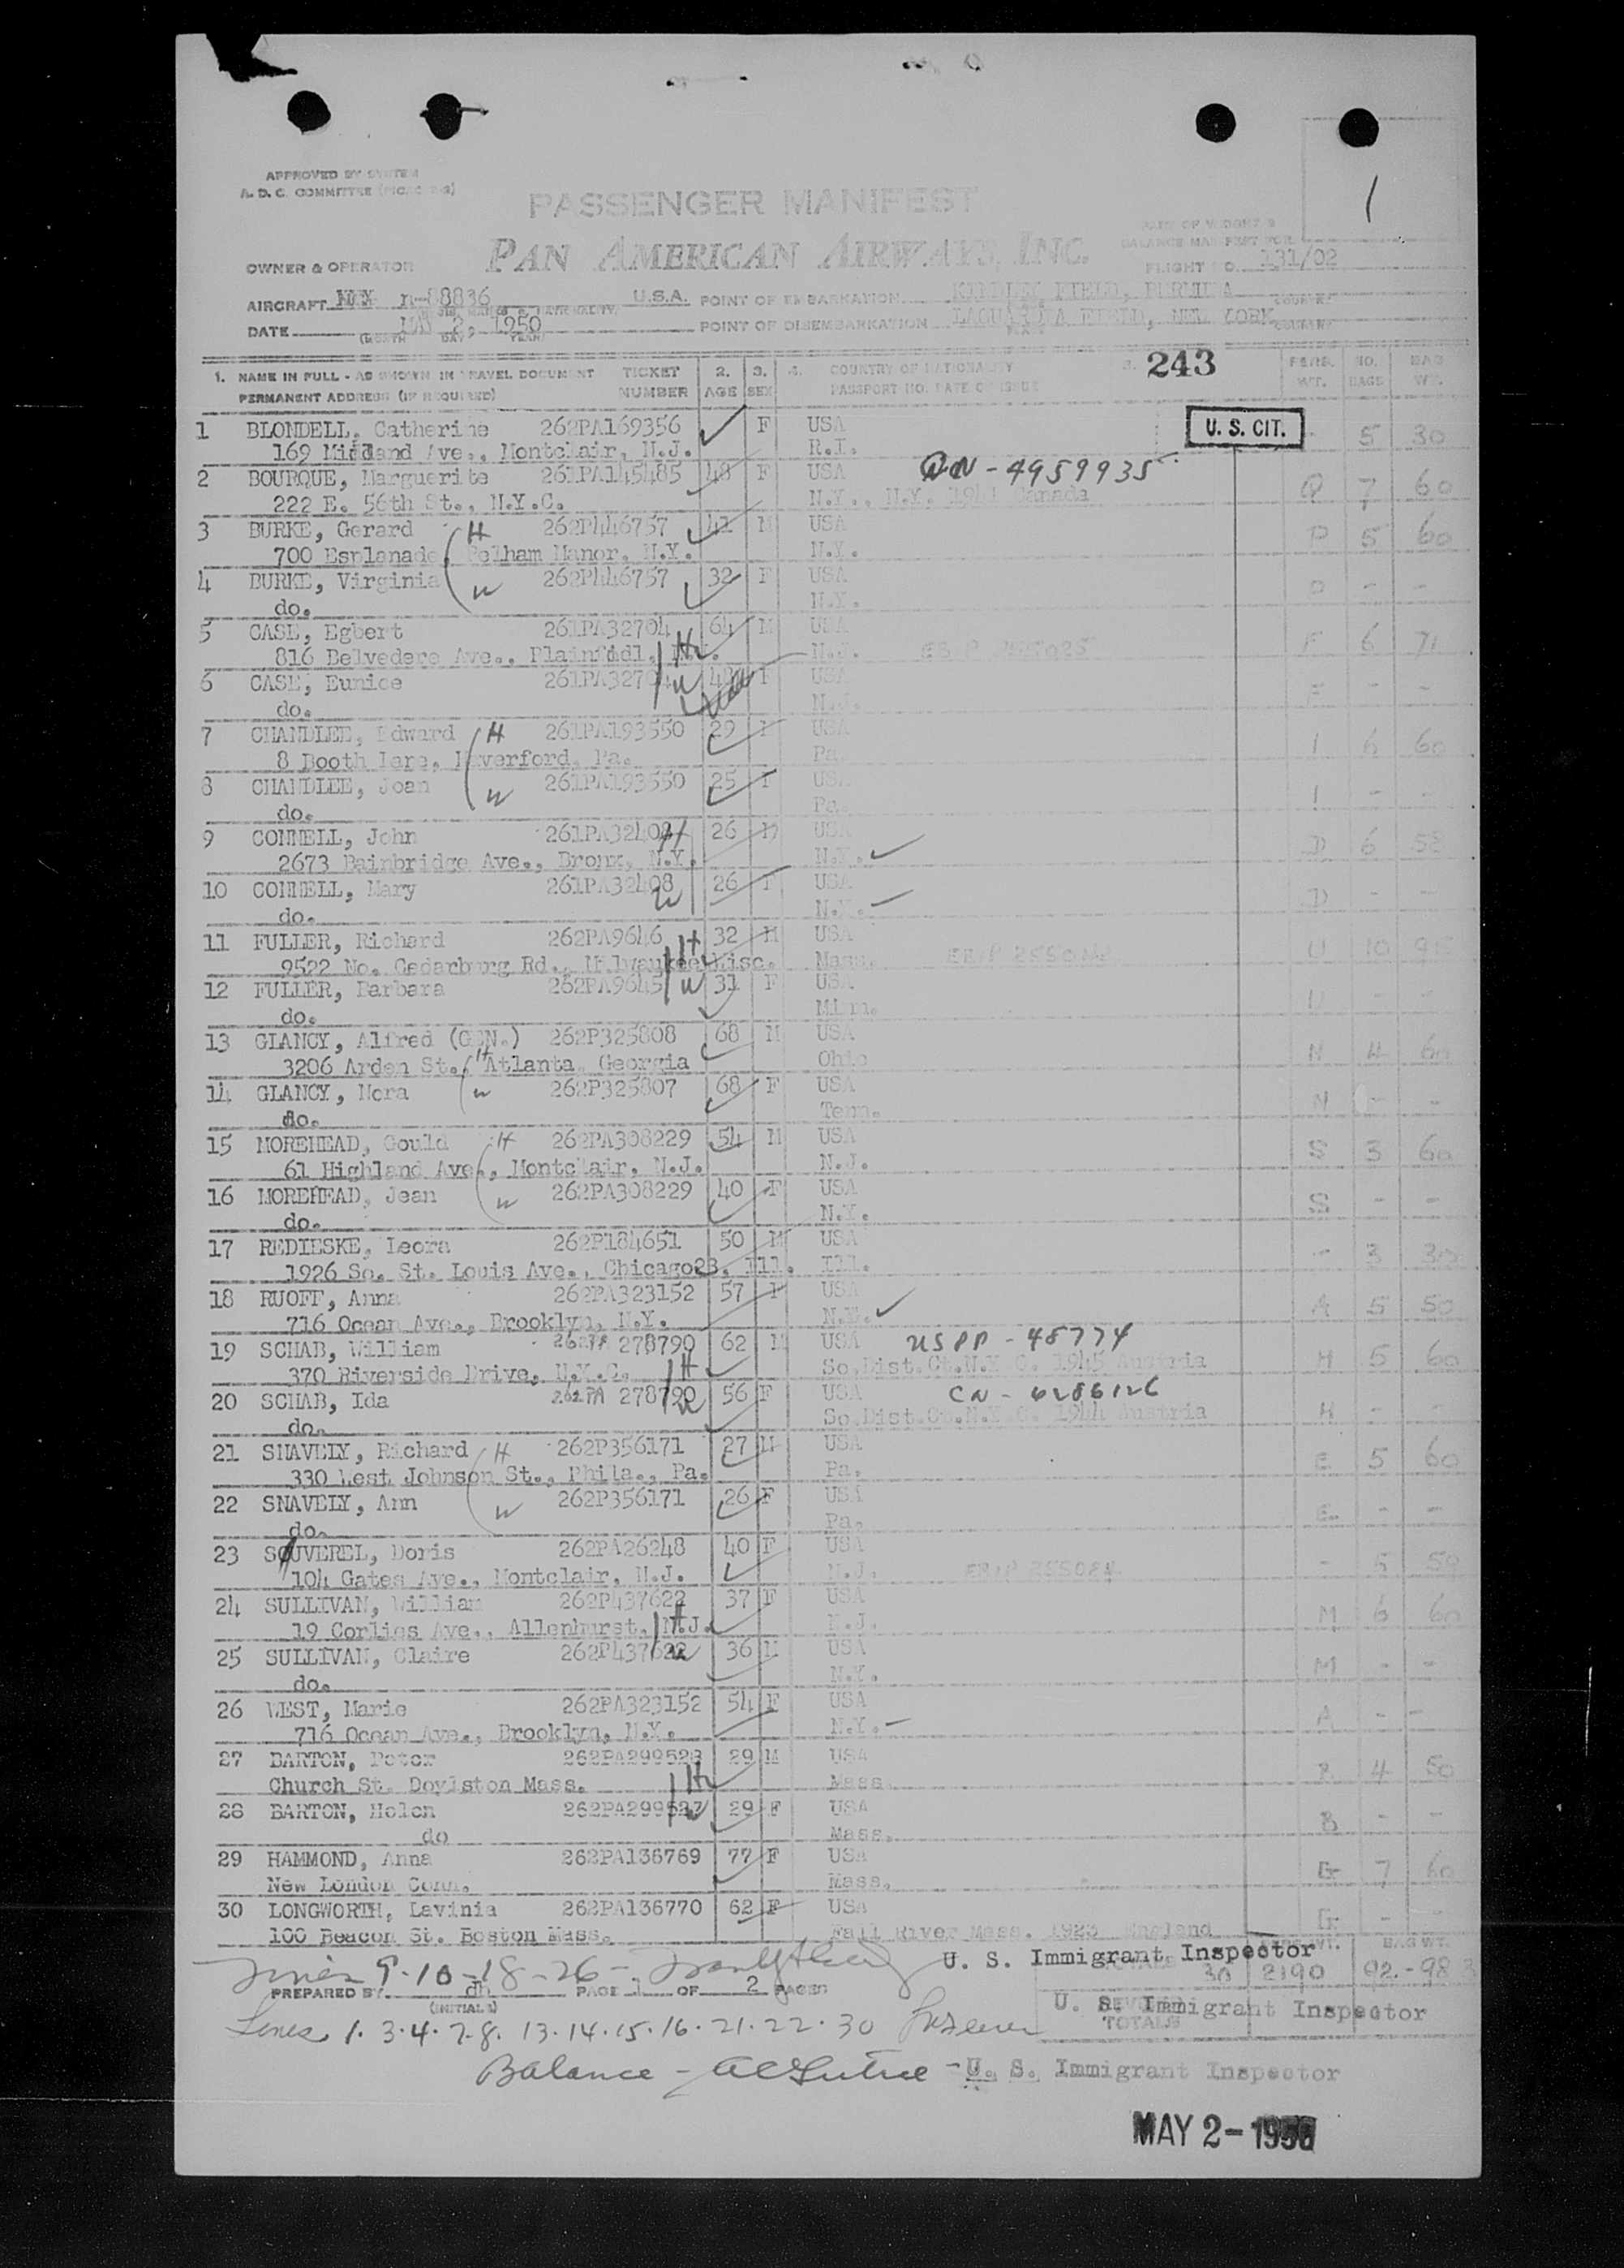 APPROVED BY SYSTEM
A. D. C. COMMITTEE
1
PASSENGER MANIFEST
PAN AMERICAN AIRWAYS, INC.
BALANCE MANIFEST FOR
OWNER & OPERATOR
FLIGHT NO. 131/02
AIRCRAFT n-88836 U.S.A. POINT OF EMBARKATION KINDLEY FIELD, BERMUDA
DATE MAY 2, 1950 POINT OF DISEMBARKATION LAGUARDIA FIELD, NEW YORK
(MONTH DAY YEAR)
1. NAME IN FULL - AS SHOWN IN TRAVEL DOCUMENT TICKET 2. 3. 4. COUNTRY OF NATIONALITY 243 PERS. NO. BAG
PERMANENT ADDRESS (IF REQUIRED) NUMBER AGE SEX PASSPORT NO. DATE OF ISSUE WT. BAGS WT.
1 BLONDELL, Catherine 262PA169356 F USA U. S. CIT. 5 30
169 Midland Ave., Montclair, N.J. R.I.
2 BOURQUE, Marguerite 261PA145485 48 F USA CN-4959935 Q 7 60
222 E. 56th St., N.Y.C. N.Y., N.Y. 1941 Canada
3 BURKE, Gerard H 262P446757 41 M USA P 5 60
700 Esplanade, Pelham Manor, N.Y. N.Y.
4 BURKE, Virginia W 262P446757 32 F USA - -
do. N.Y.
5 CASE, Egbert 261PA32704 64 M USA F 6 71
816 Belvedere Ave., H N.J.
6 CASE, Eunice W F USA F - -
do. N.J.
7 CHANDLEE, Edward H 261PA193550 29 M USA 1 6 60
8 Booth Lane, Haverford, Pa. Pa.
8 CHANDLEE, Joan W 261PA193550 25 F USA 1 - -
do. Pa.
9 CONNELL, John 261PA32408 H 26 M USA D 6 58
2673 Bainbridge Ave., Bronx, N.Y. N.Y.
10 CONNELL, Mary 261PA32408 W 26 F USA D - -
do. N.Y.
11 FULLER, Richard 262PA9646 H 32 M USA U 10 95
9522 No. Cedarburg Rd., Milwaukee Wisc. Mass.
12 FULLER, Barbara 262PA9645 W 31 F USA U - -
do. Minn.
13 GLANCY, Alfred (GEN.) 262P325808 68 M USA N 4 60
3206 Arden St., H Atlanta, Georgia Ohio
14 GLANCY, Nora W 262P325807 68 F USA N - -
do. Tenn.
15 MOREHEAD, Gould H 262PA308229 54 M USA S 3 60
61 Highland Ave., Montclair, N.J. N.J.
16 MOREHEAD, Jean W 262PA308229 40 F USA S - -
do. N.Y.
17 REDIESKE, Leora 262P184651 50 USA - 3 30
1926 So. St. Louis Ave., Chicago 23, Ill. Ill.
18 RUOFF, Anna 262PA323152 57 F USA A 5 50
716 Ocean Ave., Brooklyn, N.Y. N.Y.
19 SCHAB, William 262PA 278790 62 M USA USPP-48774 H 5 60
370 Riverside Drive, N.Y.C. H So.Dist.Ct.N.Y.C. 1945 Austria
20 SCHAB, Ida 262PA 278790 W 56 F USA CN-6286126 H - -
do. So.Dist.Ct.N.Y.C. 1944 Austria
21 SNAVELY, Richard H 262P356171 27 M USA E 5 60
330 West Johnson St., Phila., Pa. Pa.
22 SNAVELY, Ann W 262P356171 26 F USA E - -
do. Pa.
23 SOUVEREL, Doris 262PA26248 40 F USA - 5 50
104 Gates Ave., Montclair, N.J. N.J.
24 SULLIVAN, William 262P437622 37 F USA M 6 60
19 Corlies Ave., Allenhurst, N.J. H N.J.
25 SULLIVAN, Claire 262P437622 W 36 M USA M - -
do. N.Y.
26 WEST, Marie 262PA323152 54 F USA A - -
716 Ocean Ave., Brooklyn, N.Y. N.Y.
27 BARTON, Peter 262PA299528 29 M USA B 4 50
Church St. Boylston Mass. H Mass.
28 BARTON, Helen 262PA299527 W 29 F USA B - -
do Mass.
29 HAMMOND, Anna 262PA136769 77 F USA G 7 60
New London Conn. Mass.
30 LONGWORTH, Lavinia 262PA136770 62 F USA G - -
100 Beacon St. Boston Mass. Fall River Mass. 1923 England
Lines 9-10-18-26- U. S. Immigrant Inspector
30 2190 92 - 983
PREPARED BY dh PAGE 1 OF 2 PAGES
(INITIALS) U. S. Immigrant Inspector
TOTALS
Lines 1.3.4.7.8.13.14.15.16.21.22.30
Balance - U. S. Immigrant Inspector
MAY 2-1950